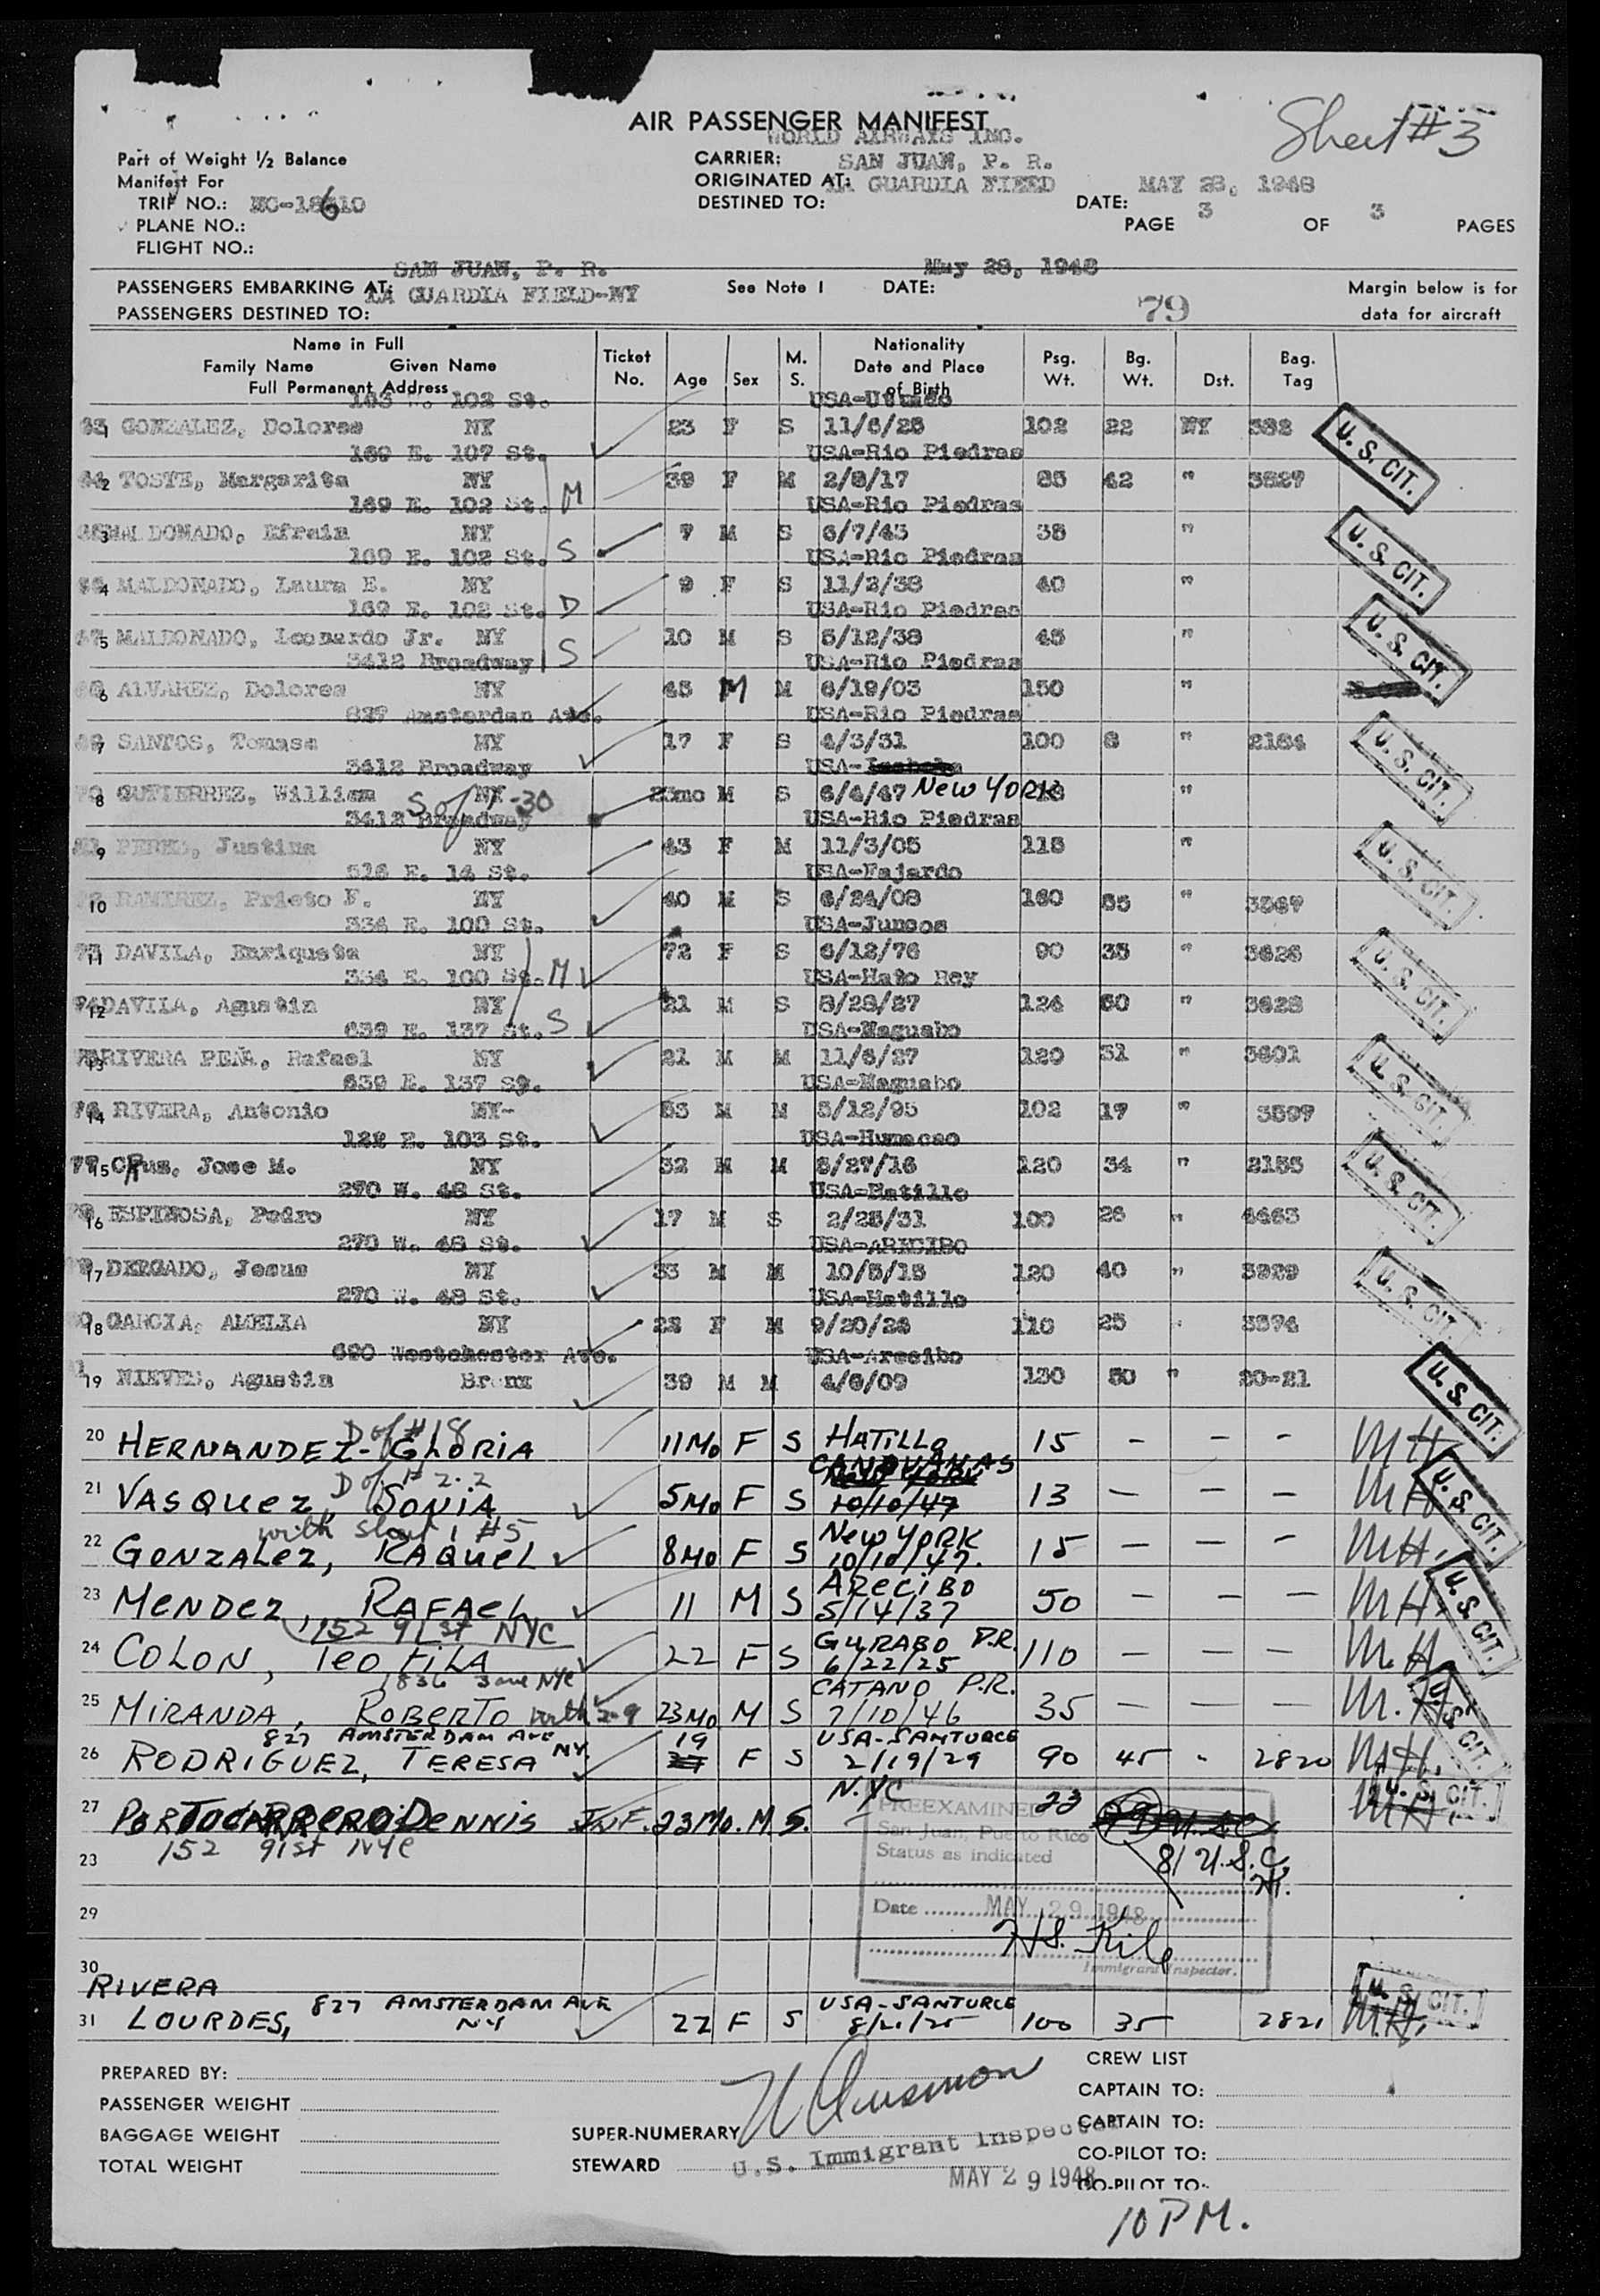 Sheet #3
AIR PASSENGER MANIFEST
WORLD AIRWAYS INC.
Part of Weight ½ Balance
Manifest For
CARRIER: SAN JUAN, P. R.
ORIGINATED AT: LA GUARDIA FIELD MAY 28, 1948
TRIP NO.: NC-18610
DESTINED TO: DATE:
PLANE NO.: PAGE 3 OF 3 PAGES
FLIGHT NO.:
SAN JUAN, P. R. May 28, 1948
PASSENGERS EMBARKING AT: LA GUARDIA FIELD-NY See Note 1 DATE: Margin below is for
PASSENGERS DESTINED TO: 79 data for aircraft
Name in Full
Family Name Given Name
Full Permanent Address
Ticket No. Age Sex M. S. Nationality Date and Place of Birth Psg. Wt. Bg. Wt. Dst. Bag. Tag
102 St. USA-Utuado
1 GONZALEZ, Dolores NY 23 F S 11/6/25 102 22 NY 382 U. S. CIT.
169 E. 107 St. USA-Rio Piedras
2 TOSTE, Margarita NY M 39 F M 2/8/17 85 42 " 3627 U. S. CIT.
169 E. 102 St. USA-Rio Piedras
3 MALDONADO, Efrain NY S 7 M S 6/7/43 38 " U. S. CIT.
169 E. 102 St. USA-Rio Piedras
4 MALDONADO, Laura E. NY D 9 F S 11/2/38 40 "
169 E. 102 St. USA-Rio Piedras
5 MALDONADO, Leonardo Jr. NY S 10 M S 5/12/38 45 " U. S. CIT.
3412 Broadway USA-Rio Piedras
6 ALVAREZ, Dolores NY 45 M M 6/19/03 150 "
827 Amsterdan Ave. USA-Rio Piedras
7 SANTOS, Tomasa NY 17 F S 4/3/31 100 8 " 2184 U. S. CIT.
3412 Broadway USA-
8 GUTIERREZ, William NY S of 1-30 23mo M S 6/4/47 New YORK "
3412 Broadway USA-Rio Piedras
9 PEREZ, Justina NY 43 F M 11/3/05 118 " U. S. CIT.
516 E. 14 St. USA-Fajardo
10 RAMIREZ, Prieto F. NY 40 M S 6/24/08 160 55 " 3567
334 E. 100 St. USA-Juncos
11 DAVILA, Enriqueta NY M 72 F S 6/12/76 90 35 " 3626 U. S. CIT.
334 E. 100 St. USA-Hato Rey
12 DAVILA, Agustin NY S 21 M S 8/28/27 124 60 " 3628
639 E. 137 St. USA-Naguabo
13 RIVERA PEÑA, Rafael NY 21 M M 11/6/27 120 31 " 3601 U. S. CIT.
639 E. 137 St. USA-Naguabo
14 RIVERA, Antonio NY- 53 M M 5/12/95 102 17 " 3597
122 E. 103 St. USA-Humacao
15 CRuz, Jose M. NY 32 M M 8/27/16 120 34 " 2155 U. S. CIT.
270 W. 48 St. USA-Hatillo
16 ESPINOSA, Pedro NY 17 M S 2/25/31 100 26 " 4463
270 W. 48 St. USA-ARECIBO
17 DERGADO, Jesus NY 33 M M 10/5/15 120 40 " 3929 U. S. CIT.
270 W. 48 St. USA-Hatillo
18 GARCIA, AMELIA NY F M 9/20/26 110 25 3594
690 Westchester Ave. USA-Arecibo
19 NIEVES, Agustin Bronx 39 M M 4/6/09 130 50 " 20-21 U. S. CIT.
D of #18
20 HERNANDEZ- GLORIA 11 Mo F S HATILLO 15 - - - MH
D of 1-2-2 CANOVANAS
21 VASQUEZ, SONIA 5 Mo F S 10/10/47 13 - - - MH U. S. CIT.
with sheet 1 #5 New YORK
22 GONZALEZ, RAQUEL 8 Mo F S 10/10/47. 15 - - - MH.
ARECIBO
23 MENDEZ, RAFAEL 11 M S 5/14/37 50 - - - MH. U. S. CIT.
152 91st NYC GURABO P.R.
24 COLON, TEOFILA 22 F S 6/22/25 110 - - - M.H.
1836 3 ave NYC CATANO P.R.
25 MIRANDA, ROBERTO with 2-9 23 Mo M S 7/10/46 35 - - - M.H. U. S. CIT.
827 AMSTERDAM AVE USA-SANTURCE
26 RODRIGUEZ, TERESA NY. 19 F S 2/19/29 90 45 - 2820 M.H.
N.YC
27 PORTOCARRERO DENNIS INF. 23 Mo. M S. 23 M.H. U. S. CIT.
152 91st NYC
PREEXAMINED
San Juan, Puerto Rico
Status as indicated
81 U.S.C.
23
29
Date MAY 29 1948
H.S. Kile
Immigrant Inspector.
30
RIVERA
827 AMSTERDAM AVE USA-SANTURCE
31 LOURDES, NY 22 F S 100 35 2821 M.H. U. S. CIT.
PREPARED BY:
PASSENGER WEIGHT
BAGGAGE WEIGHT
TOTAL WEIGHT
SUPER-NUMERARY
STEWARD
U.S. Immigrant Inspector
MAY 29 1948
CREW LIST
CAPTAIN TO:
CAPTAIN TO:
CO-PILOT TO:
CO-PILOT TO:
10 PM.